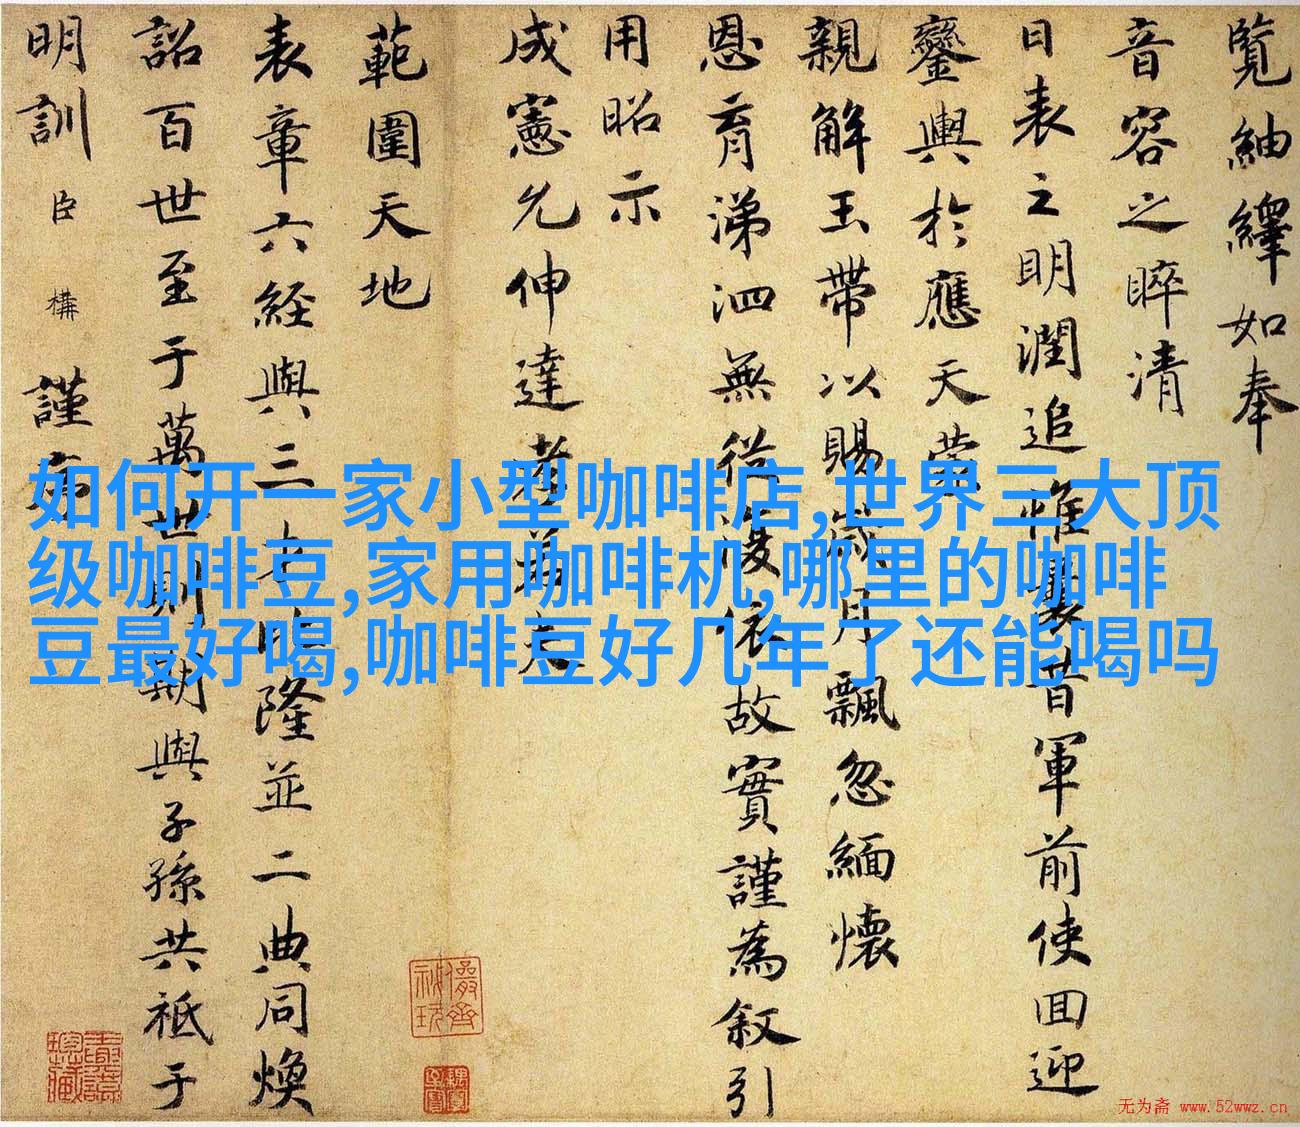 覽紬繹如奉
音容之睟清
日表之明潤追惟曩昔軍前使回迎
鑾輿於應天嘗
親解玉帶以賜歲月飄忽緬懷
恩育涕泗無從依故實謹為叙引
用昭示
成憲允伸達孝若夫
範圍天地
表章六経與三才比隆並二典同煥
詔百世至于萬世則期與子孫共祗于
明訓臣構謹序
如何开一家小型咖啡店,世界三大顶
级咖啡豆,家用咖啡机,哪里的咖啡
豆最好喝,咖啡豆好几年了还能喝吗
无为斋 www.52wwz.cn